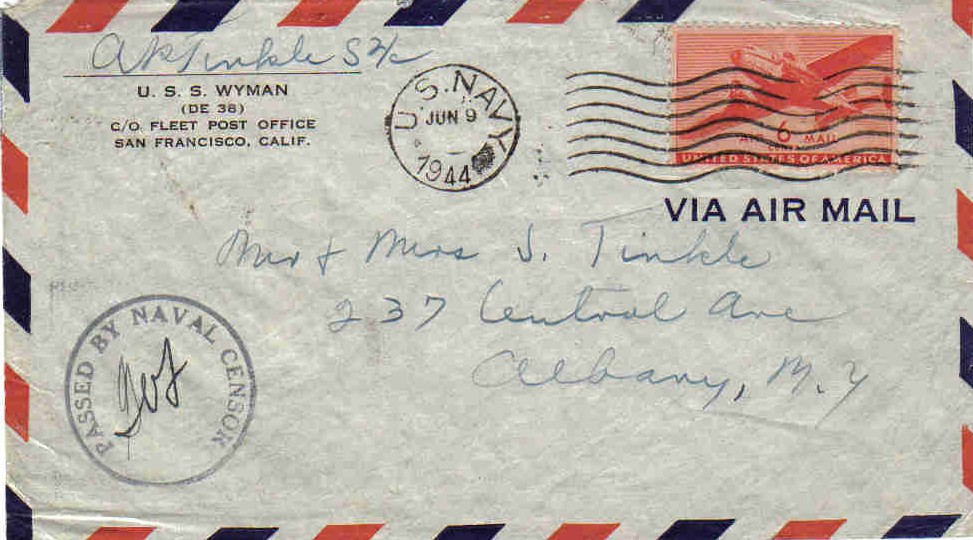 A R Tinkle S 2/c
U. S. S. WYMAN
(DE 38)
C/O FLEET POST OFFICE
SAN FRANCISCO, CALIF.
U.S. NAVY
JUN 9
1944
AIR 6 MAIL
CENTS
UNITED STATES OF AMERICA
VIA AIR MAIL
Mr & Mrs S. Tinkle
237 Central Ave
Albany, N.Y
PASSED BY NAVAL CENSOR